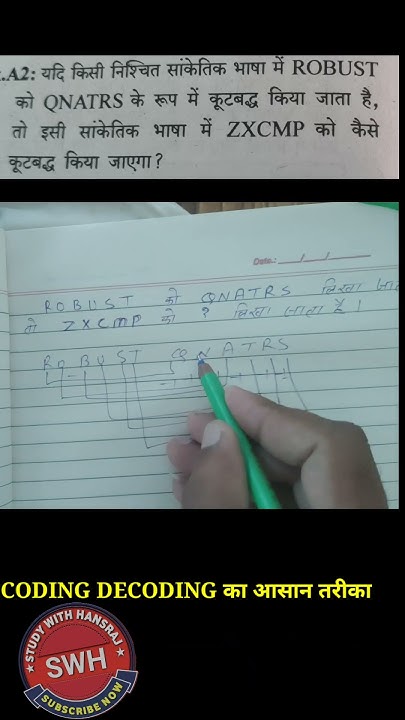 .A2: यदि किसी निश्चित सांकेतिक भाषा में ROBUST
को QNATRS के रूप में कूटबद्ध किया जाता है,
तो इसी सांकेतिक भाषा में ZXCMP को कैसे
कूटबद्ध किया जाएगा?
Date: __/__/__
ROBUST को QNATRS लिखा जा
तो ZXCMP को ? लिखा जाता है।
RO BU ST QN A T R S
CODING DECODING का आसान तरीका
STUDY WITH HANSRAJ
SWH
SUBSCRIBE NOW